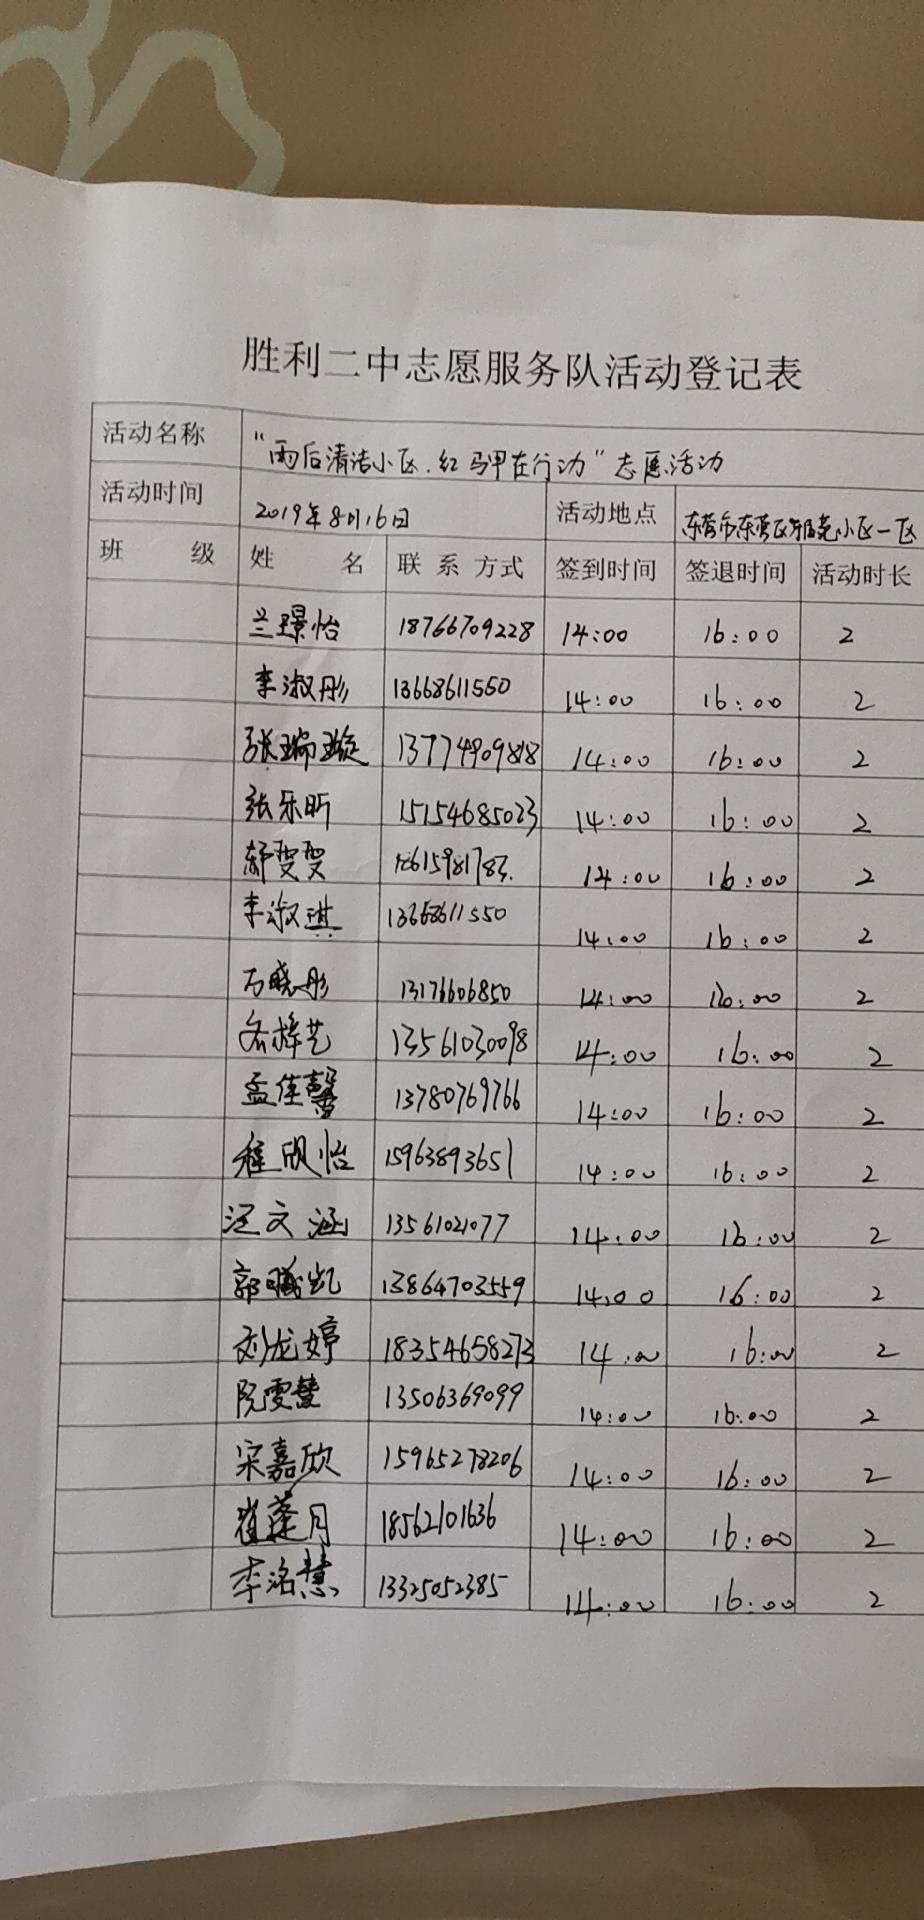 胜利二中志愿服务队活动登记表
活动名称 "雨后清洁小区.红马甲在行动"志愿活动
活动时间 2019年8月16日 活动地点 东营市东营区 小区一区
班 级 姓 名 联系方式 签到时间 签退时间 活动时长
兰璟怡 18766709228 14:00 16:00 2
李淑彤 13668611550 14:00 16:00 2
张瑞璇 14:00 16:00 2
张乐昕 15154685023 14:00 16:00 2
郝雯雯 14:00 16:00 2
李淑琪 13668611550 14:00 16:00 2
万晓彤 13176606850 14:00 16:00 2
13561030098 14:00 16:00 2
孟佳馨 13780769766 14:00 16:00 2
程欣怡 15963893651 14:00 16:00 2
汪文涵 13561021077 14:00 16:00 2
郭 凯 13864703559 14:00 16:00 2
刘龙婷 18354658273 14:00 16:00 2
阮雯慧 13506369099 14:00 16:00 2
宋嘉欣 15965278206 14:00 16:00 2
崔蓬月 18562101636 14:00 16:00 2
李洺慧 13325052385 14:00 16:00 2